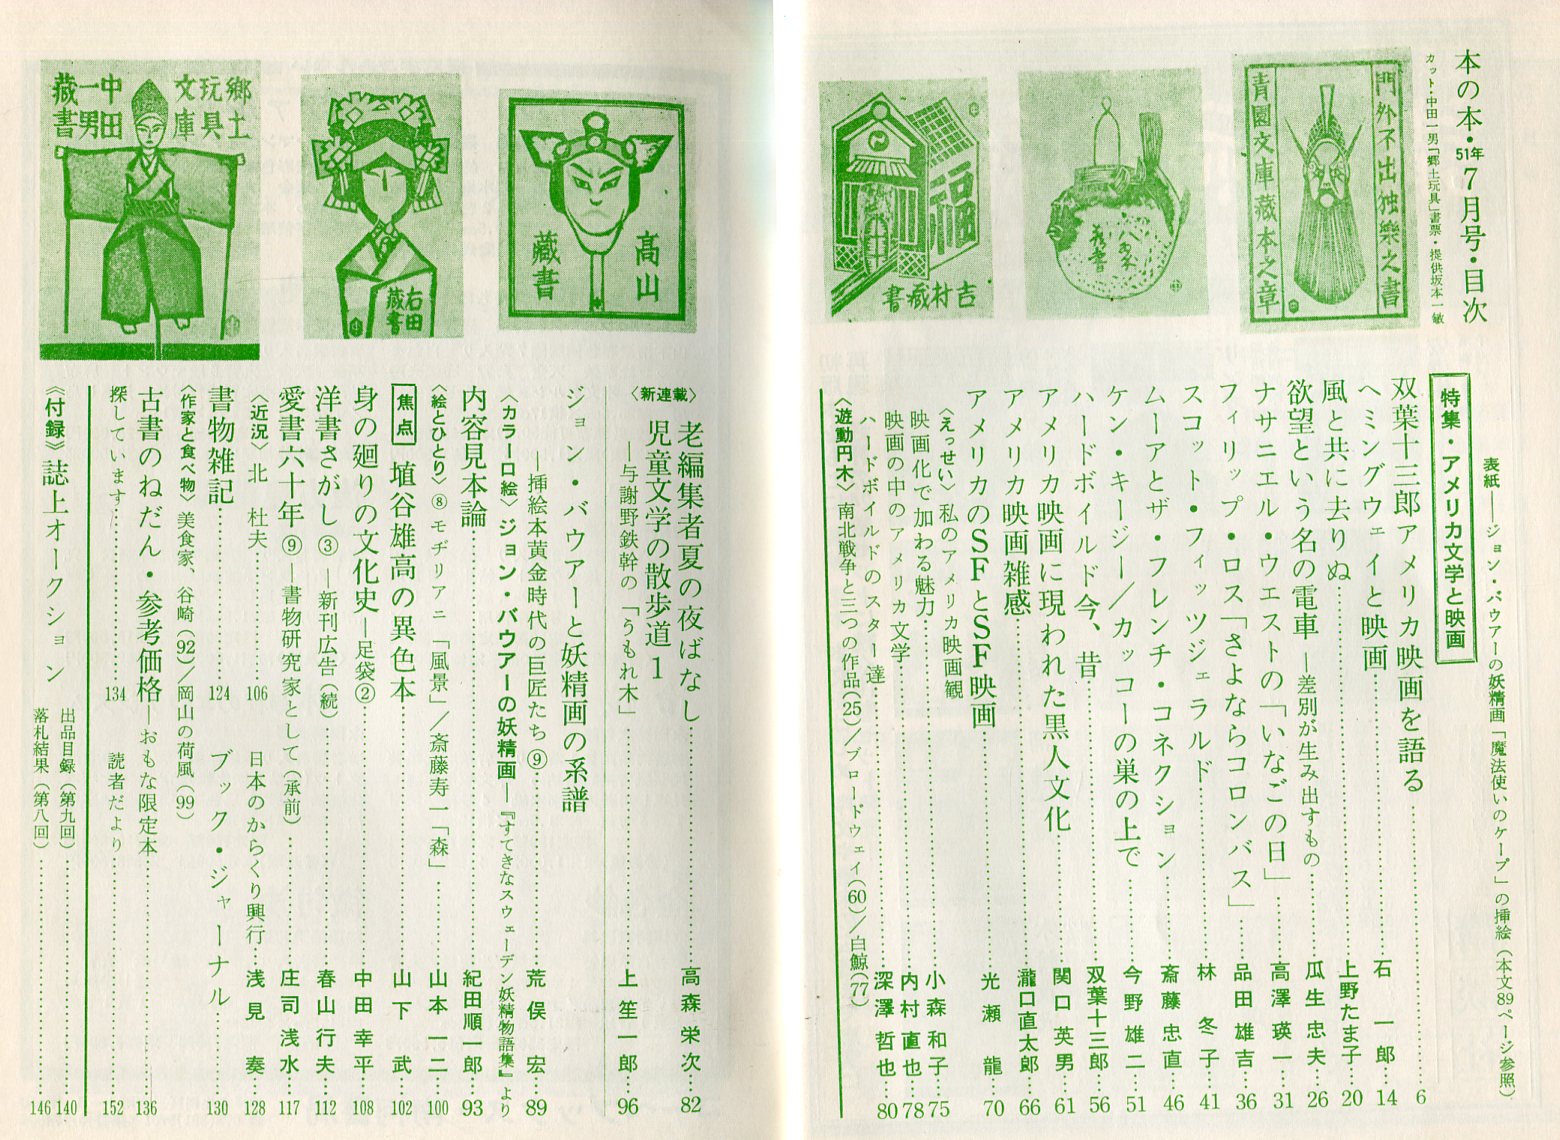 本の本・51年7月号・目次
カット・中田一男「郷土玩具」書票・提供坂本一敏
門外不出独樂之書
青園文庫藏本之章
福
吉村藏書
高山
藏書
右田
藏書
郷土
玩具
文庫
中田
一男
藏書
表紙――ジョン・バウアーの妖精画「魔法使いのケープ」の挿絵(本文89ページ参照)
特集・アメリカ文学と映画
双葉十三郎アメリカ映画を語る……6
ヘミングウェイと映画……石一郎……14
風と共に去りぬ……上野たま子……20
欲望という名の電車―差別が生み出すもの……瓜生忠夫……26
ナサニエル・ウエストの「いなごの日」……高澤瑛一……31
フィリップ・ロス「さよならコロンバス」……品田雄吉……36
スコット・フィッツジェラルド……林冬子……41
ムーアとザ・フレンチ・コネクション……斎藤忠直……46
ケン・キージー/カッコーの巣の上で……今野雄二……51
ハードボイルド今、昔……双葉十三郎……56
アメリカ映画に現われた黒人文化……関口英男……61
アメリカ映画雑感……瀧口直太郎……66
アメリカのSFとSF映画……光瀬龍……70
〈えっせい〉私のアメリカ映画観
映画化で加わる魅力……小森和子……75
映画の中のアメリカ文学……内村直也……78
ハードボイルドのスター達……深澤哲也……80
〈遊動円木〉南北戦争と三つの作品(25)/ブロードウェイ(60)/白鯨(77)
〈新連載〉
老編集者夏の夜ばなし……高森栄次……82
児童文学の散歩道1
―与謝野鉄幹の「うもれ木」……上笙一郎……96
ジョン・バウアーと妖精画の系譜
―挿絵本黄金時代の巨匠たち⑨……荒俣宏……89
〈カラー口絵〉ジョン・バウアーの妖精画―『すてきなスウェーデン妖精物語集』より
内容見本論……紀田順一郎……93
〈絵とひとり〉⑧モヂリアニ「風景」/斎藤寿一「森」……山本一二……100
焦点 埴谷雄高の異色本……山下武……102
身の廻りの文化史―足袋②……中田幸平……108
洋書さがし③―新刊広告(続)……春山行夫……112
愛書六十年⑨―書物研究家として(承前)……庄司浅水……117
〈近況〉北杜夫……106
日本のからくり興行……浅見奏……128
書物雑記……124
ブック・ジャーナル……130
〈作家と食べ物〉美食家、谷崎(92)/岡山の荷風(99)
古書のねだん・参考価格―おもな限定本……136
探しています……134
読者だより……152
《付録》誌上オークション
出品目録(第九回)……140
落札結果(第八回)……146